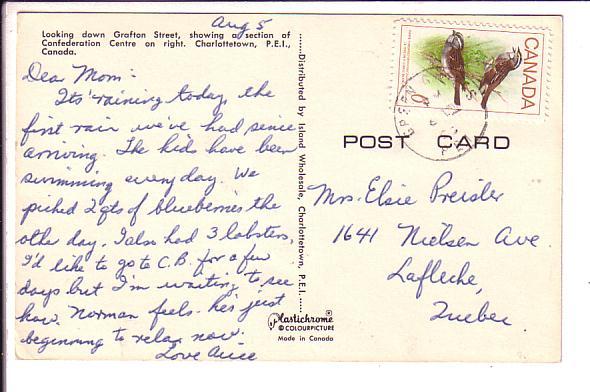 Aug 5
Looking down Grafton Street, showing a section of
Confederation Centre on right. Charlottetown, P.E.I.,
Canada.
Dear Mom -
Its' raining today, the
first rain we've had sence
arriving. The kids have been
swimming everyday. We
picked 2 qts of blueberries the
other day. I also had 3 lobsters.
I'd like to go to C.B. for a few
days but I'm waiting to see
how Norman feels. he's just
beginning to relax now.
Love
.....Distributed by Island Wholesale, Charlottetown, P.E.I.....
Plastichrome ®
© COLOURPICTURE
Made in Canada
CANADA
6
POST CARD
Mrs. Elsie Preisler
1641 Nielsen Ave.
Lafleche,
Quebec.